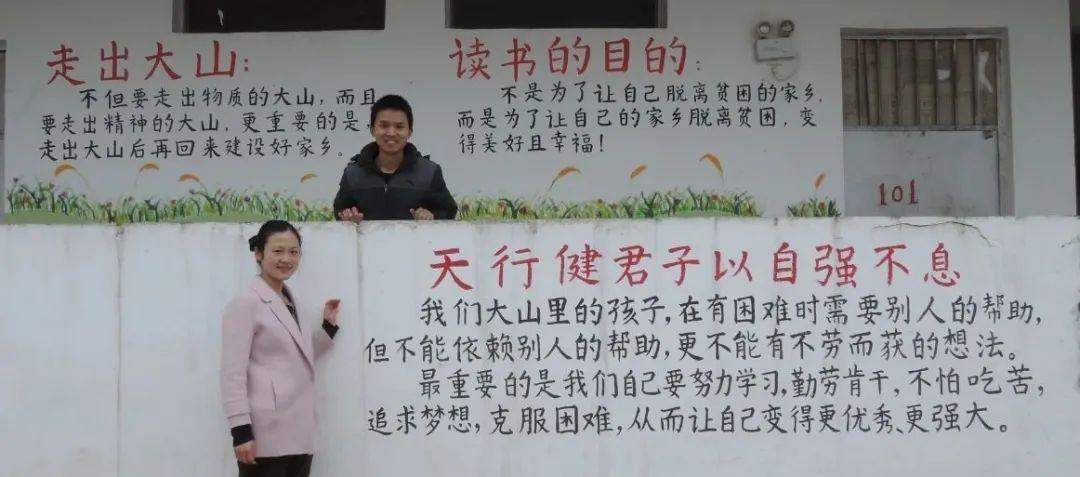 走出大山:
不但要走出物质的大山,而且
要走出精神的大山,更重要的是,
走出大山后再回来建设好家乡。
读书的目的:
不是为了让自己脱离贫困的家乡,
而是为了让自己的家乡脱离贫困,变
得美好且幸福!
101
天行健君子以自强不息
我们大山里的孩子,在有困难时需要别人的帮助,
但不能依赖别人的帮助,更不能有不劳而获的想法。
最重要的是我们自己要努力学习,勤劳肯干,不怕吃苦,
追求梦想,克服困难,从而让自己变得更优秀、更强大。